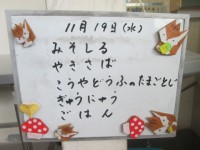 11月19日(水)
みそしる
やきさば
こうやどうふのたまごとじ
ぎゅうにゅう
ごはん